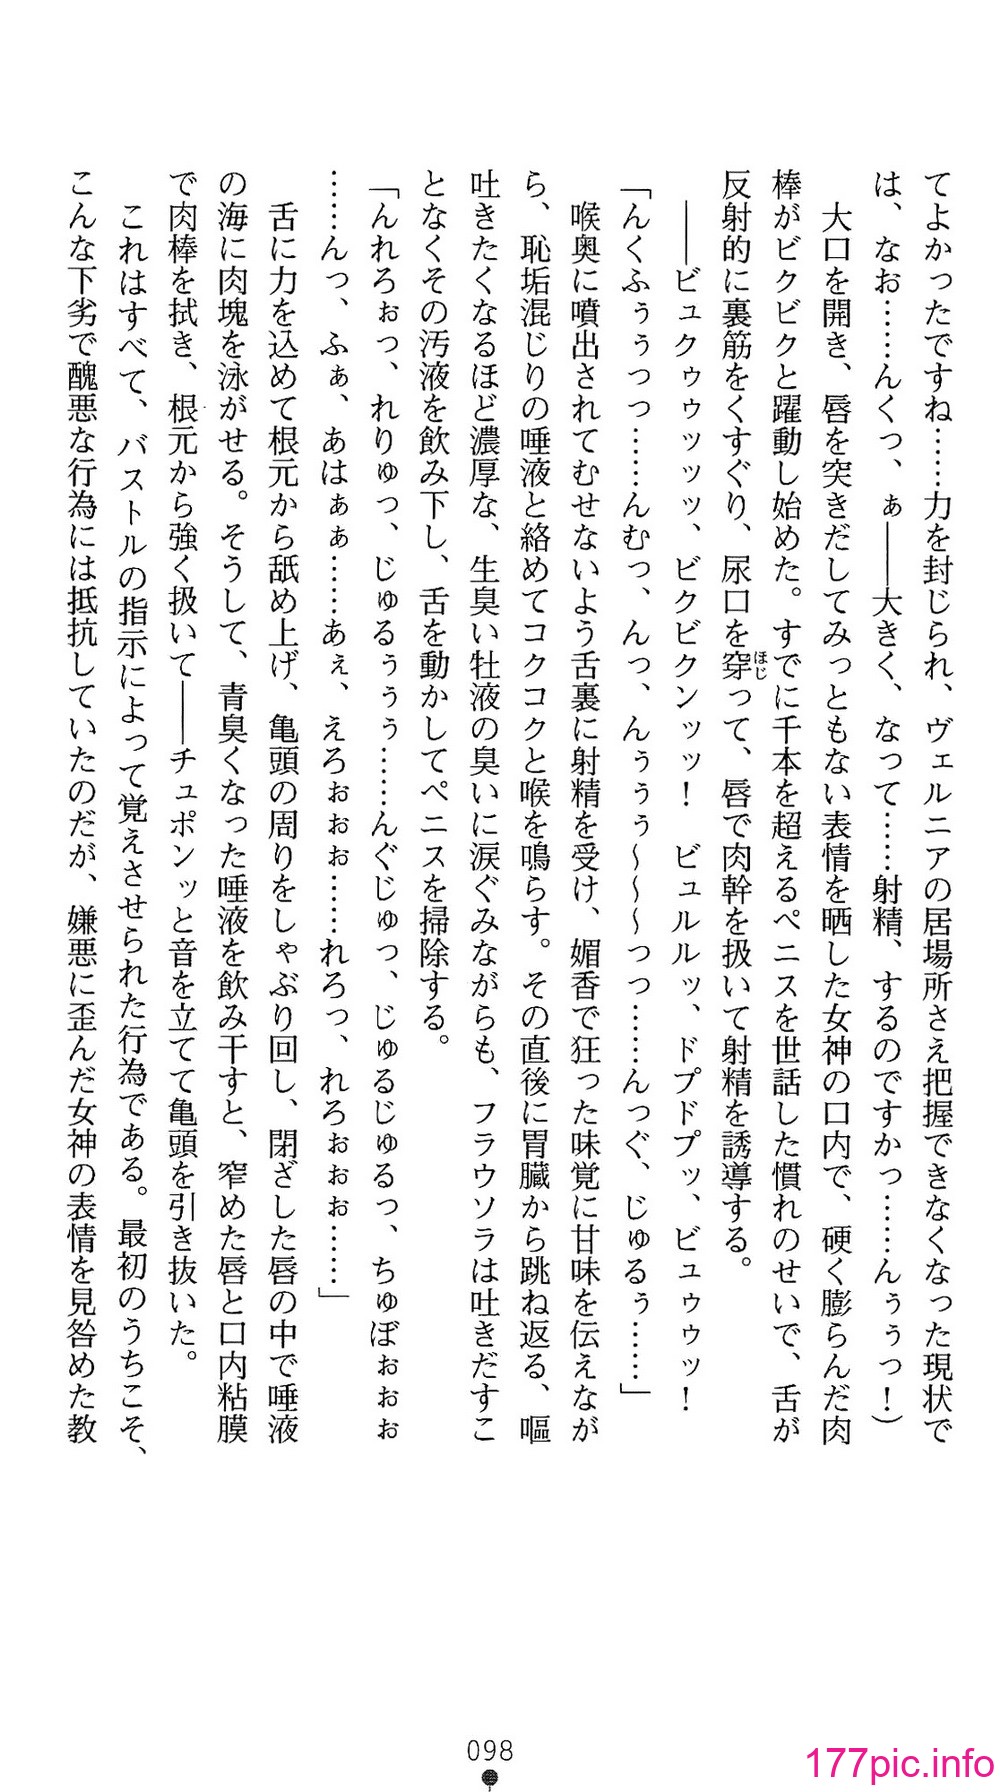 てよかったですね……力を封じられ、ヴェルニアの居場所さえ把握できなくなった現状で
は、なお……んくっ、ぁ――大きく、なって……射精、するのですかっ……んぅぅっ！）
　大口を開き、唇を突きだしてみっともない表情を晒した女神の口内で、硬く膨らんだ肉
棒がビクビクと躍動し始めた。すでに千本を超えるペニスを世話した慣れのせいで、舌が
反射的に裏筋をくすぐり、尿口を穿ほじって、唇で肉幹を扱いて射精を誘導する。
　――ビュクゥゥッッッ、ビクビクンッッ！　ビュルルッ、ドプドプッ、ビュゥゥッ！
「んくふぅぅっっ……んむっ、んっ、んぅぅぅ～～～っっ……んっぐ、じゅるぅ……」
　喉奥に噴出されてむせないよう舌裏に射精を受け、媚香で狂った味覚に甘味を伝えなが
ら、恥垢混じりの唾液と絡めてコクコクと喉を鳴らす。その直後に胃臓から跳ね返る、嘔
吐きたくなるほど濃厚な、生臭い牡液の臭いに涙ぐみながらも、フラウソラは吐きだすこ
となくその汚液を飲み下し、舌を動かしてペニスを掃除する。
「んれろぉっ、れりゅっ、じゅるぅぅぅ……んぐじゅっ、じゅるじゅるっ、ちゅぼぉぉぉ
……んっ、ふぁ、あはぁぁ……あぇ、えろぉぉぉ……れろっ、れろぉぉぉ……」
　舌に力を込めて根元から舐め上げ、亀頭の周りをしゃぶり回し、閉ざした唇の中で唾液
の海に肉塊を泳がせる。そうして、青臭くなった唾液を飲み干すと、窄めた唇と口内粘膜
で肉棒を拭き、根元から強く扱いて――チュポンッと音を立てて亀頭を引き抜いた。
　これはすべて、バストルの指示によって覚えさせられた行為である。最初のうちこそ、
こんな下劣で醜悪な行為には抵抗していたのだが、嫌悪に歪んだ女神の表情を見咎めた教
098
177pic.info